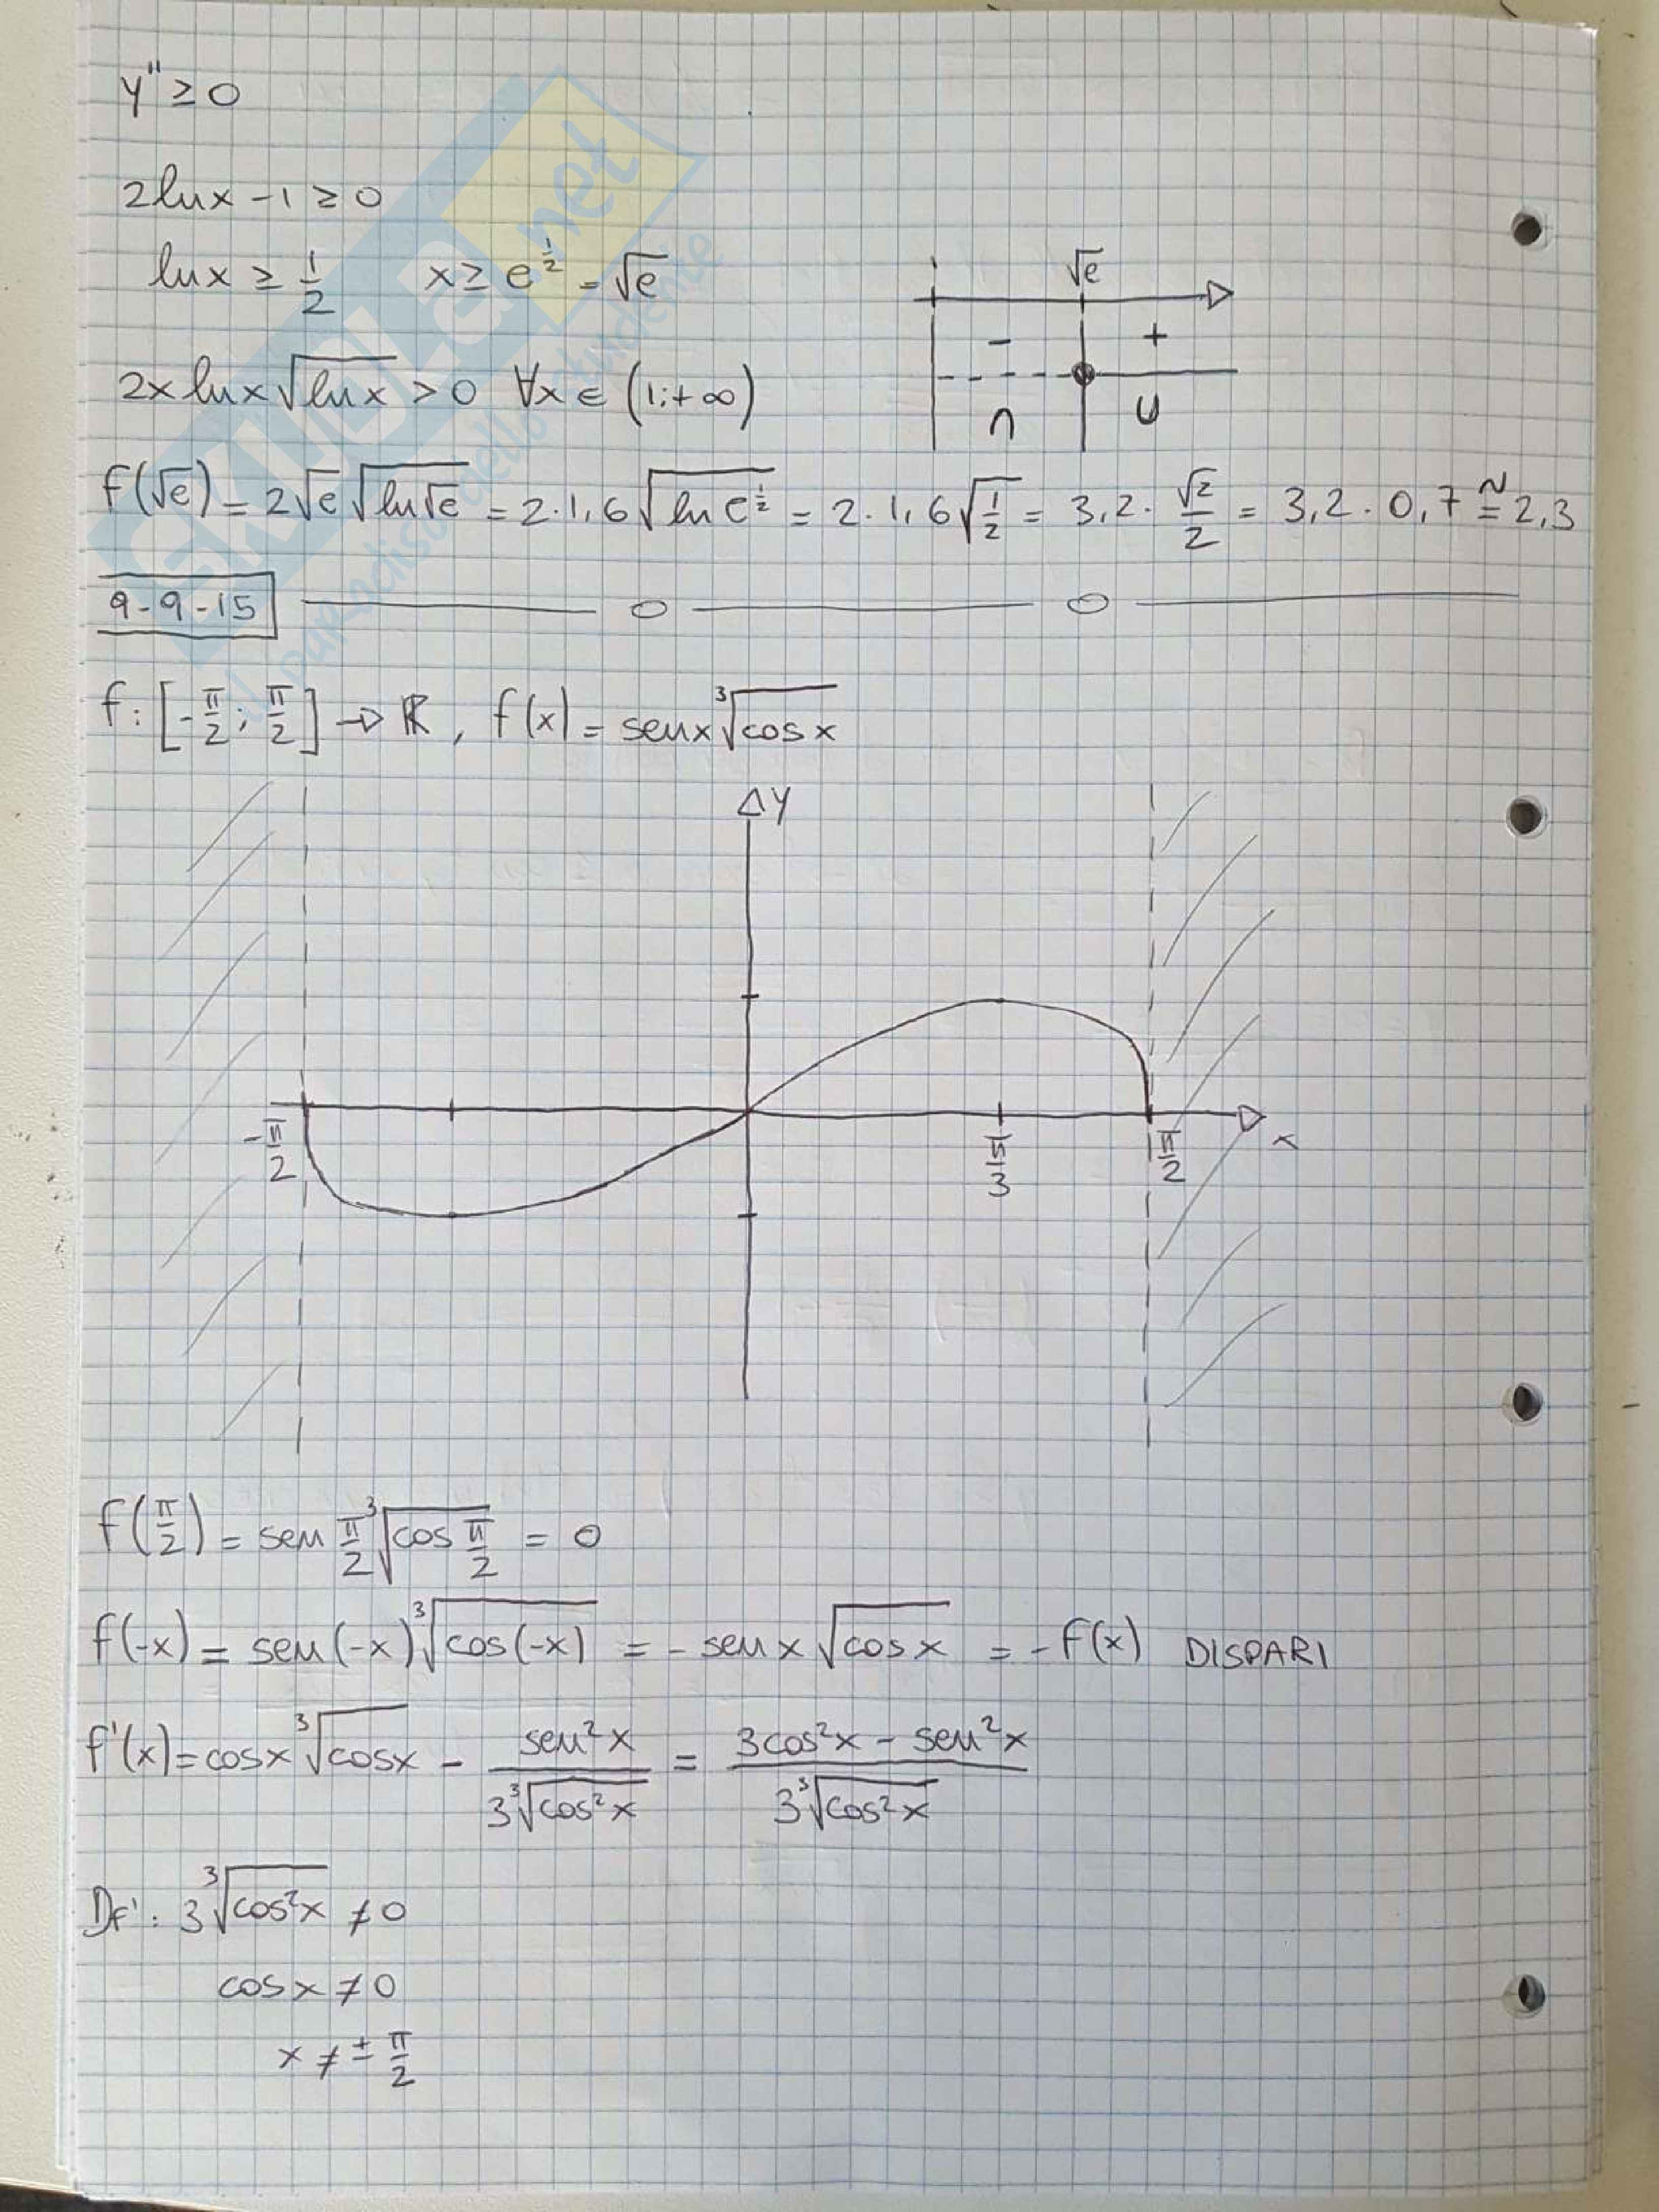 y'' ≥ 0
2lnx - 1 ≥ 0
lnx ≥ 1/2 x ≥ e^(1/2) = √e
√e
- +
∩ ∪
2x lnx √(lnx) > 0 ∀x ∈ (1;+∞)
f(√e) = 2√e √(ln√e) = 2·1,6 √(ln e^(1/2)) = 2·1,6 √(1/2) = 3,2 · √2/2 = 3,2·0,7 ≅ 2,3
9-9-15
f: [-π/2; π/2] → ℝ, f(x) = senx ∛(cosx)
y
-π/2 π/3 π/2 x
f(π/2) = sen π/2 ∛(cos π/2) = 0
f(-x) = sen(-x) ∛(cos(-x)) = - senx √(cosx) = -f(x) DISPARI
f'(x) = cosx ∛(cosx) - sen²x / 3∛(cos²x) = (3cos²x - sen²x) / 3∛(cos²x)
Df': 3∛(cos²x) ≠ 0
cosx ≠ 0
x ≠ ± π/2
SKUOLA.net
il paradiso dello studente